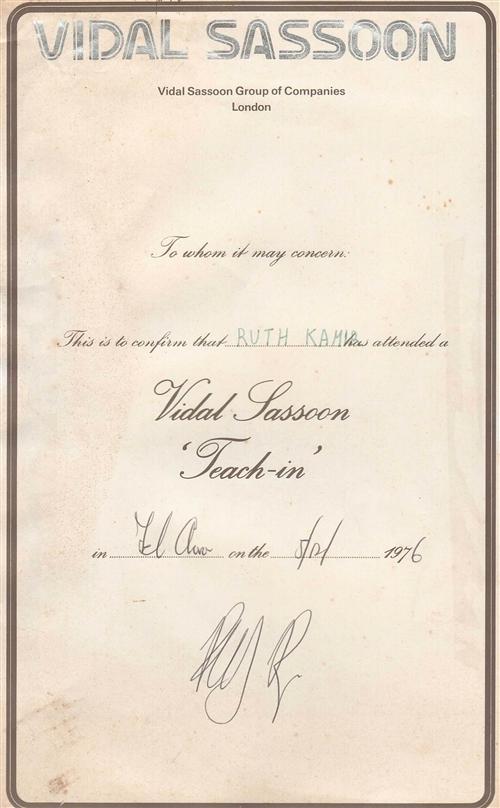 VIDAL SASSOON
Vidal Sassoon Group of Companies
London
To whom it may concern:
This is to confirm that RUTH KAMIR has attended a
Vidal Sassoon
'Teach-in'
in Tel Aviv on the 5/12/ 1976